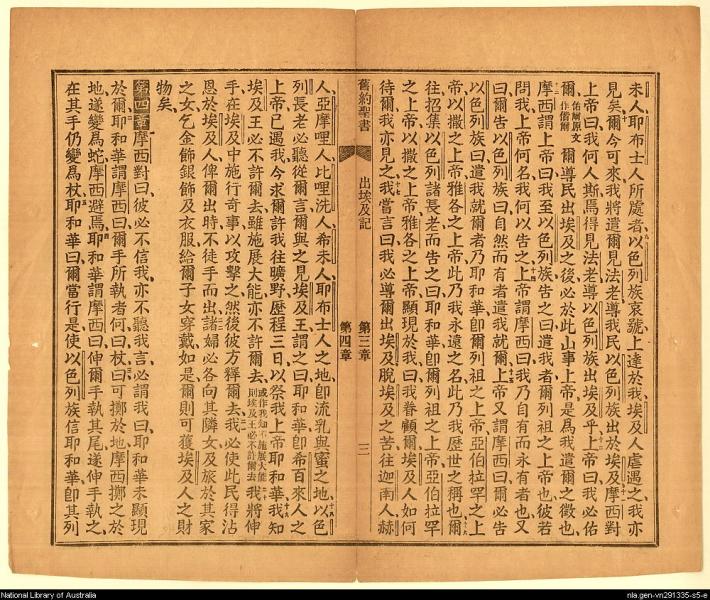 未人耶布士人所處者以色列族哀號上達於我埃及人虐遇之我亦
見矣爾今可來我將遣爾見法老導我民以色列族出於埃及摩西對
上帝曰我何人斯焉得見法老導以色列族出埃及乎上帝曰我必佑
爾佑爾原文作偕爾爾導民出埃及之後必於此山事上帝是爲我遣爾之徵也
摩西謂上帝曰我至以色列族告之曰遣我者爾列祖之上帝也彼若
問我上帝何名我何以告之上帝謂摩西曰我乃自有而永有者也又
曰爾告以色列族曰自然而有者遣我就爾上帝又謂摩西曰爾必告
以色列族曰遣我就爾者乃耶和華卽爾列祖之上帝亞伯拉罕之上
帝以撒之上帝雅各之上帝此乃我永遠之名此乃我歷世之稱也爾
往招集以色列諸長老而告之曰耶和華卽爾列祖之上帝亞伯拉罕
之上帝以撒之上帝雅各之上帝顯現於我曰我眷顧爾埃及人如何
待爾我亦見之我嘗言曰我必導爾出埃及脫埃及之苦往迦南人赫
舊約聖書
出埃及記
第三章
第四章
三
人亞摩哩人比哩洗人希未人耶布士人之地卽流乳與蜜之地以色
列長老必聽從爾言爾與之見埃及王謂之曰耶和華卽希百來人之
上帝已遇我今求爾許我往曠野歷程三日以祭我上帝耶和華我知
埃及王必不許爾去雖施展大能亦不許爾去或作我知不施展大能則埃及王必不許爾去我將伸
手在埃及中施行奇事以攻擊之然後彼方釋爾去我必使此民得沾
恩於埃及人俾爾出時不徒手而出諸婦必各向其隣女及旅於其家
之女乞金飾銀飾及衣服給爾子女穿戴如是爾則可獲埃及人之財
物矣
第四章摩西對曰彼必不信我亦不聽我言必謂我曰耶和華未顯現
於爾耶和華謂摩西曰爾手所執者何曰杖曰可擲於地摩西擲之於
地遂變爲蛇摩西避焉耶和華謂摩西曰伸爾手執其尾遂伸手執之
在其手仍變爲杖耶和華曰爾當行是使以色列族信耶和華卽其列
National Library of Australia
nla.gen-vn291335-s5-e